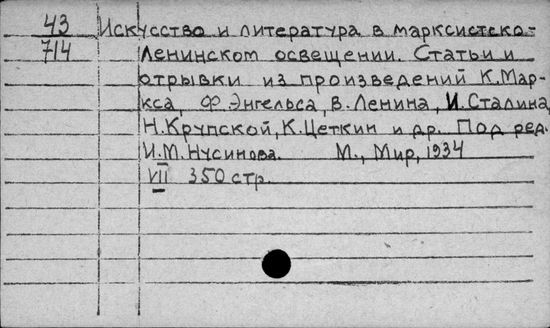 43 Искусство и литература в марксистско-
714 Ленинском освещении. Статьи и
отрывки из произведений К.Мар-
кса, Ф.Энгельса, В.Ленина, И.Сталина,
Н.Крупской, К.Цеткин и др. Под ред.
И.М.Нусинова. М., Мир, 1934
VII 350 стр.